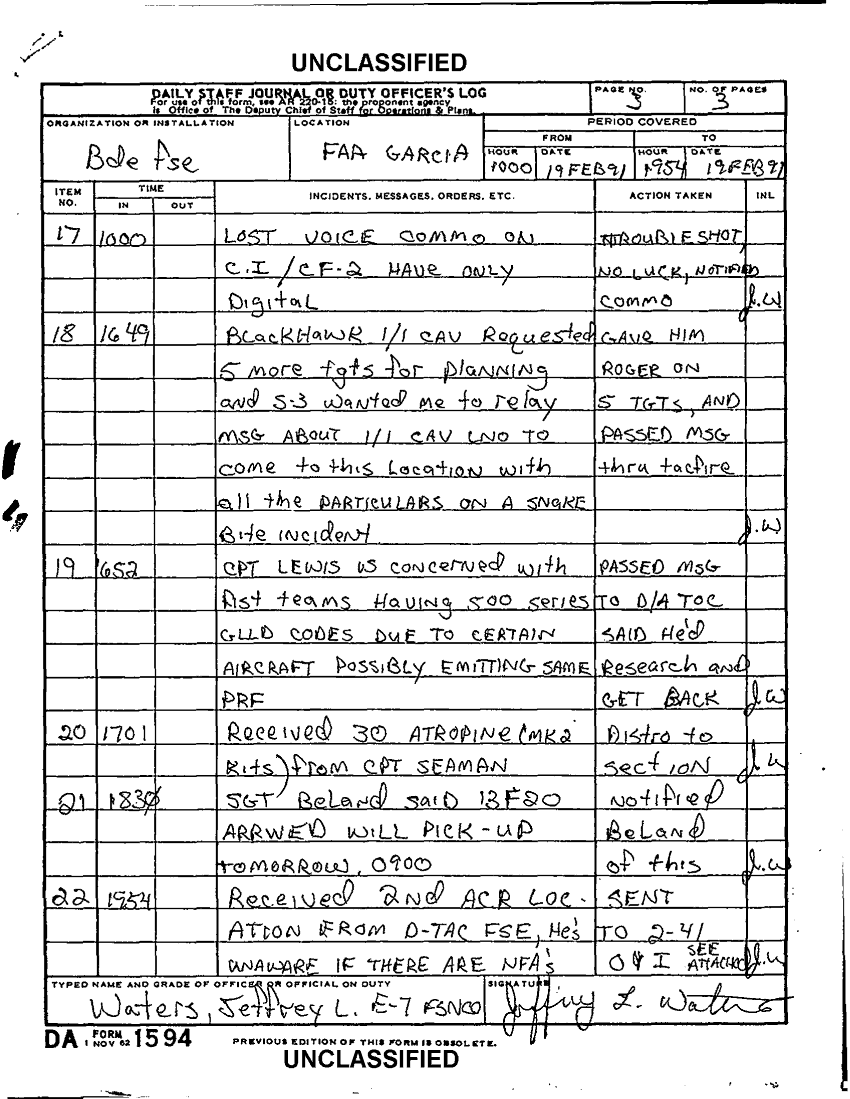 UNCLASSIFIED
DAILY STAFF JOURNAL OR DUTY OFFICER'S LOG
For use of this form, see AR 220-15: the proponent agency
is Office of The Deputy Chief of Staff for Operations & Plans.
PAGE NO.
3
NO. OF PAGES
3
ORGANIZATION OR INSTALLATION
Bde fse
LOCATION
FAA GARCIA
PERIOD COVERED
FROM
TO
HOUR DATE HOUR DATE
1000 19 FEB 91 1954 19 FEB 91
ITEM NO. TIME IN OUT INCIDENTS, MESSAGES, ORDERS, ETC. ACTION TAKEN INL
17 1000 LOST VOICE COMMO ON TROUBLE SHOT,
C.I/CF-2 HAVE ONLY NO LUCK, NOTIFIED
Digital COMMO J.W
18 1649 BLACKHAWK 1/1 CAV Requested GAVE HIM
5 more tgts for planning ROGER ON
and S-3 wanted me to relay 5 TGTS, AND
MSG ABOUT 1/1 CAV LNO TO PASSED MSG
come to this Location with thru tacfire
all the PARTICULARS ON A SNAKE
Bite incident J.W
19 1652 CPT LEWIS is concerned with PASSED MSG
Aist teams Having 500 series TO D/A TOC
GLLD CODES DUE TO CERTAIN SAID He'd
AIRCRAFT POSSIBLY EMITTING SAME Research and
PRF GET BACK J.W
20 1701 Received 30 ATROPINE (MK2 Distro to
Kits) from CPT SEAMAN section J.W
21 1830 SGT Beland said 13F20 Notified
ARRIVED WILL PICK-UP Beland
tomorrow, 0900 of this J.W
22 1954 Received 2nd ACR LOC- SENT
ATION FROM D-TAC FSE, He's TO 2-41
UNAWARE IF THERE ARE NFA's O & I SEE ATTACHED J.W
TYPED NAME AND GRADE OF OFFICER OR OFFICIAL ON DUTY
Waters, Jeffrey L. E-7 FSNCO
SIGNATURE
Jeffrey L. Waters
DA FORM 1 NOV 62 1594
PREVIOUS EDITION OF THIS FORM IS OBSOLETE.
UNCLASSIFIED